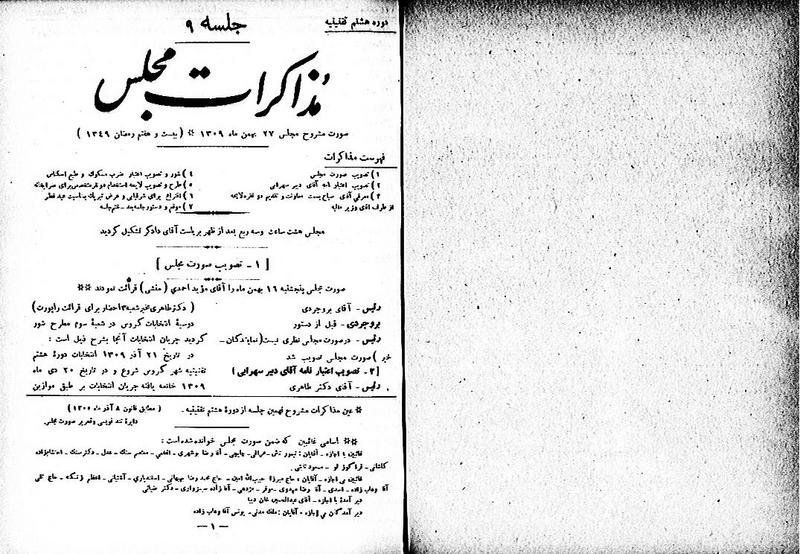 دوره هشتم تقنینیه
جلسه ۹
مذاکرات مجلس
صورت مشروح مجلس ۲۷ بهمن ماه ۱۳۰۹ * ( بیست و هفتم رمضان ۱۳۴۹ )
فهرست مذاکرات
۱ ) تصویب صورت مجلس
۲ ) تصویب اعتبار نامه آقای دبیر سهرابی
۳ ) معرفی آقای سمت معاونت و تقدیم دو فقره لایحه
از طرف آقای وزیر مالیه
۴ ) شور و تصویب اعتبار ضرب مسکوک و طبع اسکناس
۵ ) طرح و تصویب لایحه استخدام دو نفر متخصص برای
۶ ) اقتراع برای شرفیابی و عرض تبریک بمناسبت عید فطر
۷ ) موقع و دستور جلسه بعد - ختم جلسه
مجلس هشت ساعت وسه ربع بعد از ظهر بریاست آقای دادگر تشکیل گردید
[ ۱ - تصویب صورت مجلس ]
صورت مجلس پنجشنبه ۱۶ بهمن ماه را آقای مؤید احمدی ( منشی ) قرائت نمودند **
رئیس - آقای بروجردی
بروجردی - قبل از دستور
رئیس - درصورت مجلس نظری نیست (نمایندگان -
خیر ) صورت مجلس تصویب شد
[ ۲ - تصویب اعتبار نامه آقای دبیر سهرابی ]
رئیس - آقای دکتر طاهری
( دکتر طاهری مخبر شعبه ۳ احضار برای قرائت راپورت)
دوسیهٔ انتخابات گروس در شعبهٔ سوم مطرح شور
گردید جریان انتخابات آنجا بشرح ذیل است :
در تاریخ ۲۱ آذر ۱۳۰۹ انتخابات دورهٔ هشتم
تقنینیه شهر گروس شروع و در تاریخ ۲۰ دی ماه
۱۳۰۹ خاتمه یافته جریان انتخابات بر طبق موازین
* عین مذاکرات مشروح نهمین جلسه از دورهٔ هشتم تقنینیه . ( مطابق قانون ۸ آذر ماه ۱۳۰۶ )
دایرهٔ تند نویسی و تحریر صورت مجلس
** اسامی غائبین که ضمن صورت مجلس خوانده شده است :
غائبین با اجازه - آقایان : تیمور تاش - عراقی - چایچی - آقا رضا بوشهری - افخمی - معتصم سنک - عدل - دکتر سنک - اعتشامزاده
کاشانی - قراگوزلو - مسعود ثابتی .
غائبین بی اجازه - آقایان : حاج میرزا حبیب الله امین - حاج محمد رضا بهبهانی - اسفندیاری - آشتیانی - اعظم زنگنه - حاج تقی
آقا وهاب زاده - اسدی - آقا رضا مهدوی - موقر - مژدهی - آقا زاده سبزواری - دکتر ضیائی
دیر آمدهٔ با اجازه - آقای عبدالحسین خان دیبا
دیر آمدگان بی اجازه - آقایان : ملک مدنی - یونس آقا وهاب زاده
— ۱ —